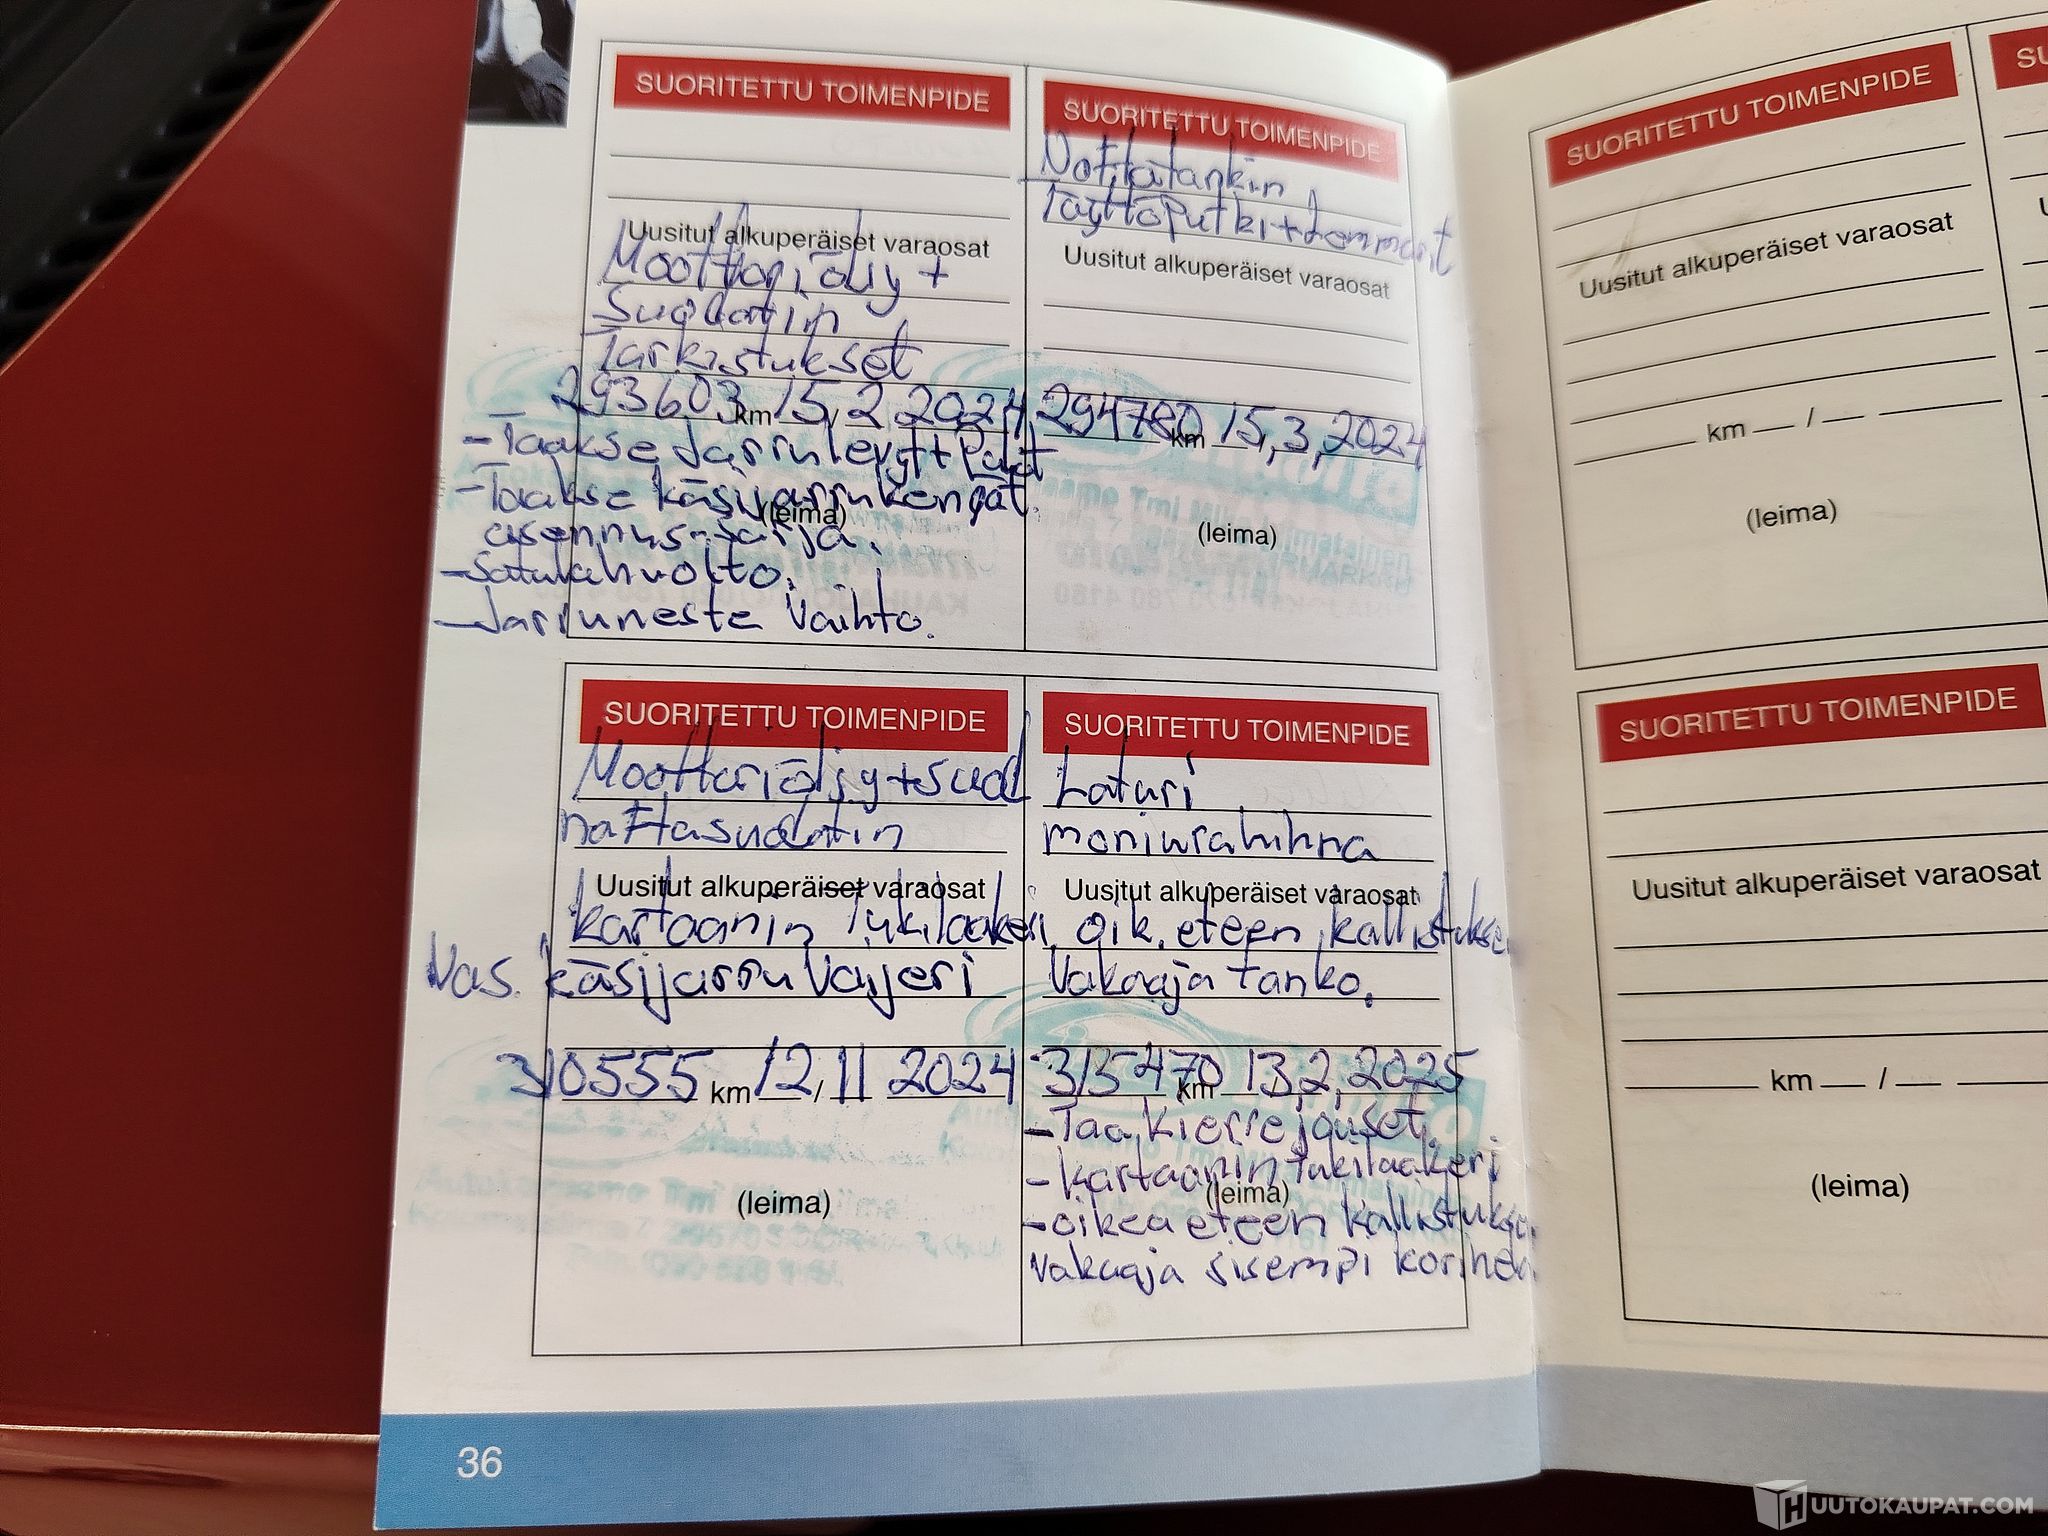 SUORITETTU TOIMENPIDE
Uusitut alkuperäiset varaosat
Moottoriöljy +
Suodatin
Tarkistukset
293603 km 15, 2 2024
- Taakse Jarrulevyt+Palat
- Taakse käsijarrukengät.
(leima)
asennus-sarja.
- Satulahuolto.
- Jarruneste Vaihto.
SUORITETTU TOIMENPIDE
täyttöPutki+
Uusitut alkuperäiset varaosat
294780 km 15,3,2024
(leima)
SUORITETTU TOIMENPIDE
Moottoriöljy+suod
naftasuodatin
Uusitut alkuperäiset varaosat
kartaanin tukilaakeri
Vas. käsijarru Vaijeri
310555 km 12/11 2024
(leima)
SUORITETTU TOIMENPIDE
Laturi
moniurahihna
Uusitut alkuperäiset varaosat
oik. eteen kallistuksen
Vakaaja tanko.
315470 km 13,2,2025
- Taa kierrejouset.
- kartaanin tukilaakeri
(leima)
- oikea eteen
vakaaja sisempi
36
SUORITETTU TOIMENPIDE
Uusitut alkuperäiset varaosat
km / 
(leima)
SUORITETTU TOIMENPIDE
Uusitut alkuperäiset varaosat
km / 
(leima)
SU
HUUTOKAUPAT.COM